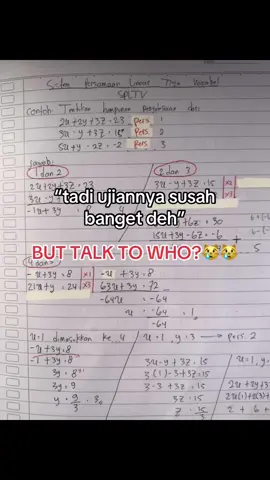 Sistem Persamaan Linear Tiga Variabel
SPLTV
Contoh: Tentukan himpunan penyelesaian dari:
2u+2y+3z=23 Pers. 1
3u-y+3z=15 Pers. 2
5u+y-2z=-2 Pers. 3
Jawab:
1 dan 2
2u+2y+3z=23
3u-y+3z=15
-1u+3y = 8
2 dan 3
3u-y+3z=15 x2
x3
+6z=30
15u+3y-6z=-6
"tadi ujiannya susah
banget deh"
BUT TALK TO WHO?😭😭
4 dan
-u+3y=8 x1
21u+y=24 x3
-u+3y=8
63u+3y=72
-64u = -64
u = -64 = 1
-64
u=1 dimasukkan ke 4
-u+3y=8
-1+3y=8
3y=8+1
3y=9
y=9/3=3
u=1, y=3 → pers. 2
3u-y+3z=15
3(1)-3+3z=15
3-3+3z=15
3z=15
z=15/3
u=1,
2u+2y+3
2u(1)+2(3)+
2+6+